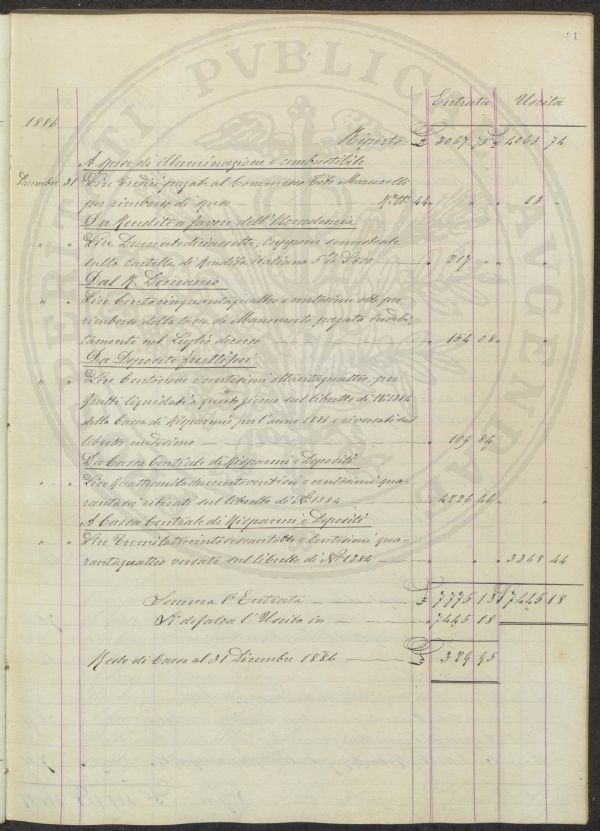 41
Entrata Uscita
1886
Riporto £ 3067 75 £ 4063 74
A spese di illuminazione e combustibile
Dicembre 31 Lire Tredici pagate al Commesso Tito Marucelli
per rimborso di spese — N° 44 " " " 13 "
Da Rendite a favore dell'Accademia
" " Lire Duecentodiciassette, cuppone semestrale
sulla cartella di Rendita italiana 5 % — " 217 " " "
Dal R. Demanio
" " Lire Centocinquantaquattro e centesimi otto per
rimborso della tassa di Manomorta pagata indebi-
tamente nel Luglio decorso — " 154 08 " "
Da Depositi fruttiferi
" " Lire Centonove e centesimi ottantaquattro, per
frutti liquidati a questo giorno sul libretto di N° 1384
della Cassa di Risparmi per l'anno 1886 e riversati sul
libretto medesimo — " 109 84 " "
Da Cassa Centrale di Risparmi e Depositi
" " Lire Quattromiladuecentoventisei e centesimi qua-
rantasei ritirati sul libretto di N° 1384 — " 4226 46 " "
A Cassa Centrale di Risparmi e Depositi
" " Lire Tremilatrecentosessantotto e Centesimi qua-
rantaquattro versate sul libretto di N° 1384 — " " " 3368 44
Somma l'Entrata — £ 7775 13 £ 7445 18
Si defalca l'Uscita in — " 7445 18
Resto di Cassa al 31 Dicembre 1886 — £ 329 95